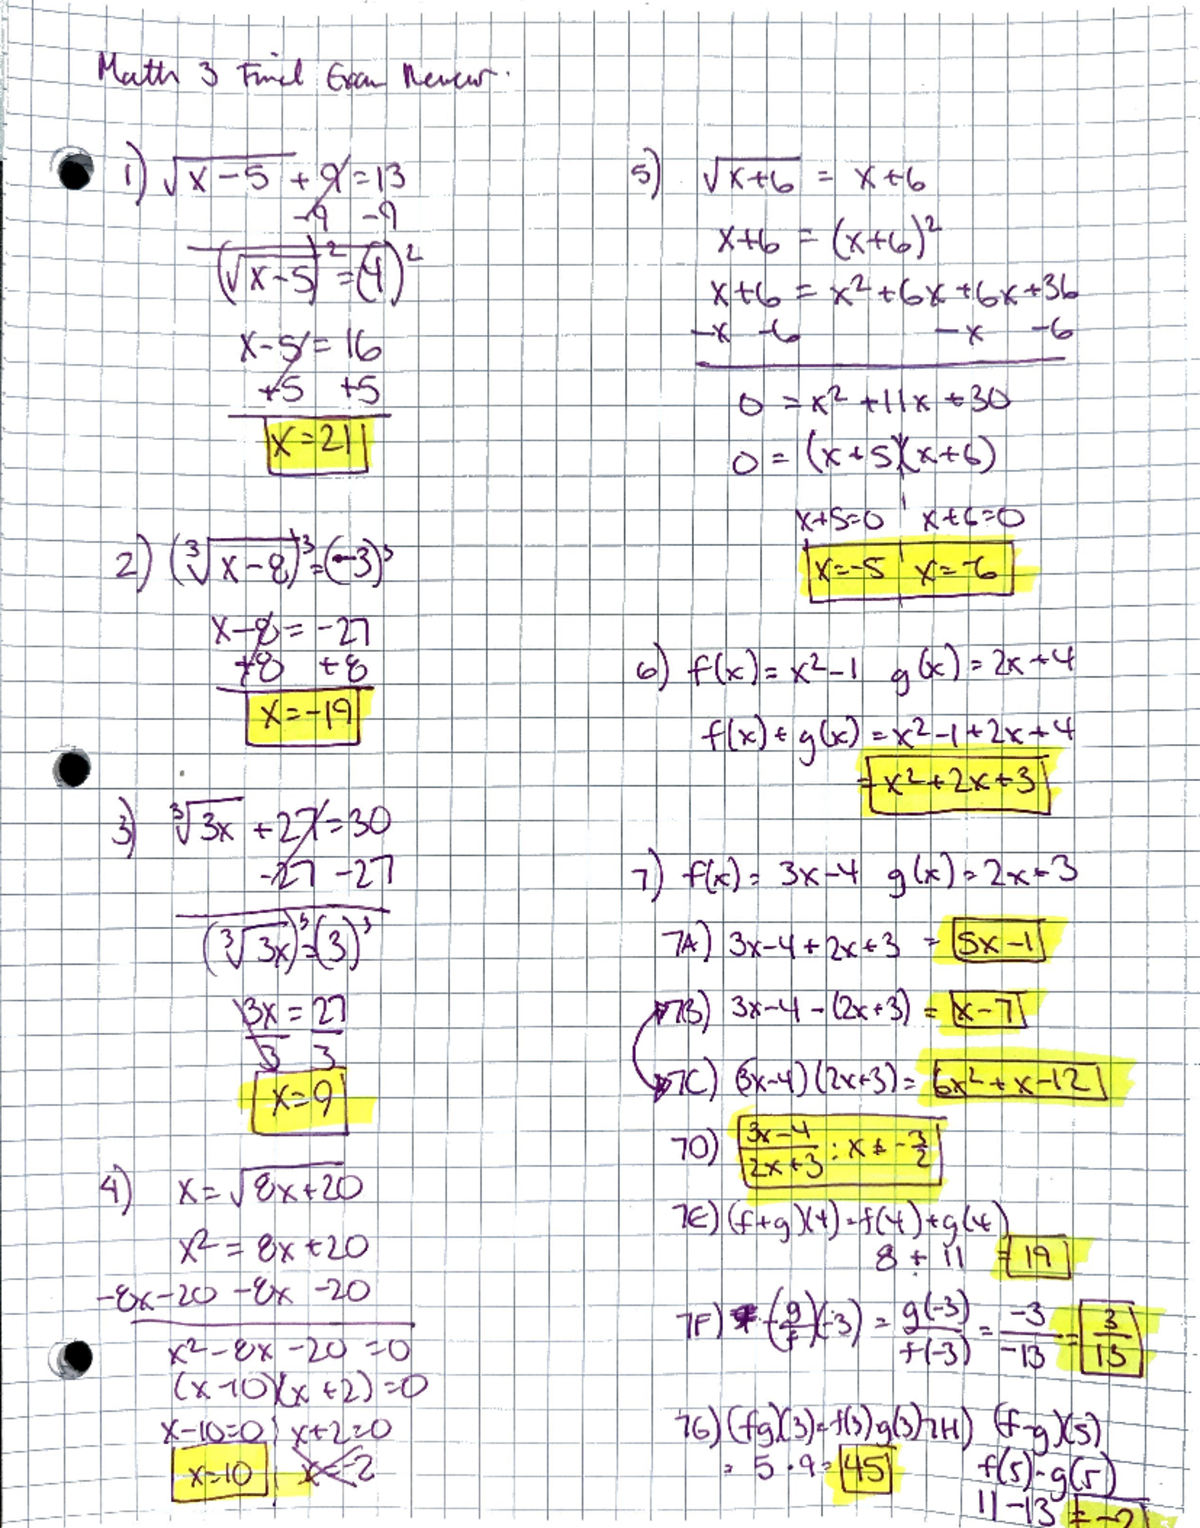 Math 3 Final Exam Review.
1) √(x-5) + 9 = 13
-9 -9
(√(x-5))² = (4)²
x-5 = 16
+5 +5
x=21
2) (∛(x-8))³ = (-3)³
x-8 = -27
+8 +8
x=-19
3) ∛(3x) + 27 = 30
-27 -27
(∛(3x))³ = (3)³
3x = 27
3 3
x=9
4) x = √(8x+20)
x² = 8x+20
-8x-20 -8x -20
x²-8x-20=0
(x-10)(x+2)=0
x-10=0 | x+2=0
x=10 | x=-2
5) √(x+6) = x+6
x+6 = (x+6)²
x+6 = x²+6x+6x+36
-x -6 -x -6
0 = x²+11x+30
0 = (x+5)(x+6)
x+5=0 | x+6=0
x=-5 | x=-6
6) f(x) = x²-1 g(x) = 2x+4
f(x)+g(x) = x²-1+2x+4
= x²+2x+3
7) f(x) = 3x-4 g(x) = 2x+3
7A) 3x-4+2x+3 = 5x-1
7B) 3x-4-(2x+3) = x-7
7C) (3x-4)(2x+3) = 6x²+x-12
7D) (3x-4)/(2x+3) : x ≠ -3/2
7E) (f+g)(4) = f(4)+g(4)
8 + 11 = 19
7F) (g/f)(-3) = g(-3)/f(-3) = -3/-13 = 3/13
7G) (fg)(3) = f(3)g(3) 7H) (f-g)(5)
= 5·9 = 45 f(5)-g(5)
11-13 = -2